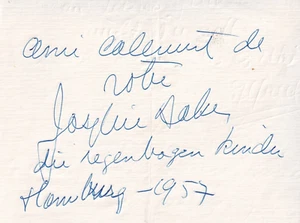 ami
de
votre
Josephine Baker
die regenbogen kinder
Hamburg - 1957